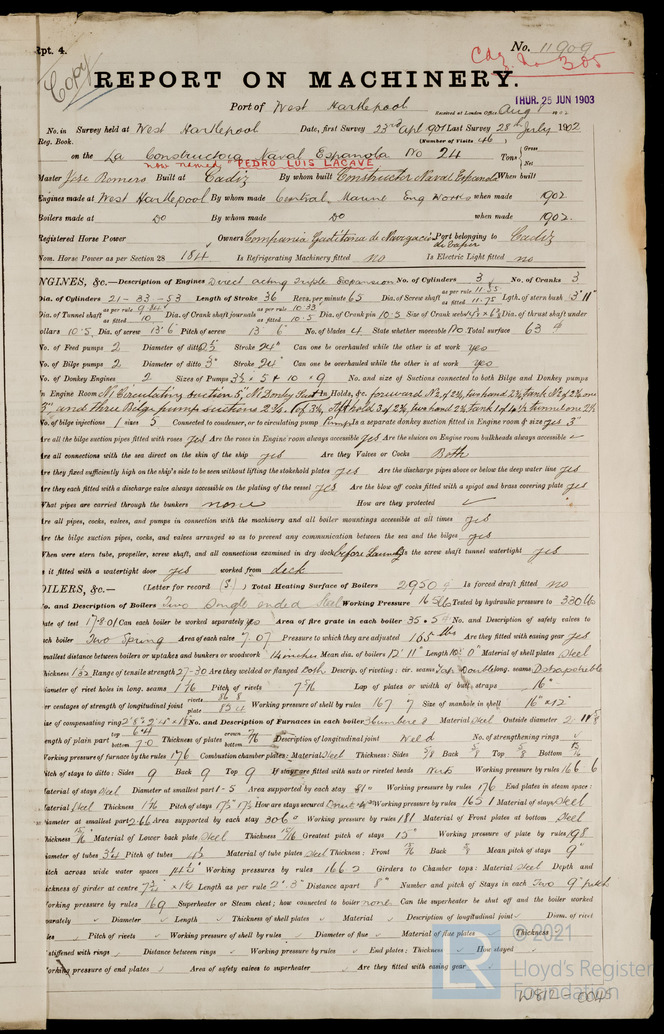 Rpt. 4.
Copy
No. 11909
Cdz. No 305
REPORT ON MACHINERY.
Port of West Hartlepool
THUR. 25 JUN 1903
Received at London Office Aug 1
No. in Survey held at West Hartlepool Date, first Survey 23rd Apl 1901 Last Survey 28th July 1902
Reg. Book. (Number of Visits 46)
on the La Constructora Naval Espanola No 24 Tons Gross Net
now named "PEDRO LUIS LACAVE"
Master Jose Romero Built at Cadiz By whom built Constructor Naval Espanola When built
Engines made at West Hartlepool By whom made Central Marine Eng Works when made 1902
Boilers made at Do By whom made Do when made 1902.
Registered Horse Power Owners Compania Gaditana de Navegacion Port belonging to Cadiz
de Vapor
Nom. Horse Power as per Section 28 184 Is Refrigerating Machinery fitted no Is Electric Light fitted no
ENGINES, &c.—Description of Engines Direct acting Triple Expansion No. of Cylinders 3 No. of Cranks 3
Dia. of Cylinders 21-33-53 Length of Stroke 36 Revs. per minute 65 Dia. of Screw shaft as per rule 11.55 as fitted 11.75 Lgth. of stern bush 3' 11"
Dia. of Tunnel shaft as fitted 10 Dia. of Crank shaft journals as per rule 10.33 as fitted 10.5 Dia. of Crank pin 10.5 Size of Crank webs Dia. of thrust shaft under
collars 10.5 Dia. of screw 13' 6" Pitch of screw 13' 6" No. of blades 4 State whether moveable no Total surface 63
No. of Feed pumps 2 Diameter of ditto Stroke 24" Can one be overhauled while the other is at work yes
No. of Bilge pumps 2 Diameter of ditto 3" Stroke 24" Can one be overhauled while the other is at work yes
No. of Donkey Engines 2 Sizes of Pumps No. and size of Suctions connected to both Bilge and Donkey pumps
In Engine Room In Holds, &c.
and three Bilge pump suctions
No. of bilge injections 1 sizes 5 Connected to condenser, or to circulating pump pump Is a separate donkey suction fitted in Engine room & size yes 3"
Are all the bilge suction pipes fitted with roses yes Are the roses in Engine room always accessible yes Are the sluices on Engine room bulkheads always accessible
Are all connections with the sea direct on the skin of the ship yes Are they Valves or Cocks Both
Are they fixed sufficiently high on the ship's side to be seen without lifting the stokehold plates yes Are the discharge pipes above or below the deep water line yes
Are they each fitted with a discharge valve always accessible on the plating of the vessel yes Are the blow off cocks fitted with a spigot and brass covering plate yes
What pipes are carried through the bunkers none How are they protected
Are all pipes, cocks, valves, and pumps in connection with the machinery and all boiler mountings accessible at all times yes
Are the bilge suction pipes, cocks, and valves arranged so as to prevent any communication between the sea and the bilges yes
When were stern tube, propeller, screw shaft, and all connections examined in dry dock before launch Is the screw shaft tunnel watertight yes
Is it fitted with a watertight door yes worked from deck
BOILERS, &c.— (Letter for record (S)) Total Heating Surface of Boilers 2950 Is forced draft fitted no
No. and Description of Boilers Two Single ended Steel Working Pressure 165 lb Tested by hydraulic pressure to 330 lb
Date of test Can each boiler be worked separately yes Area of fire grate in each boiler 35.5 No. and Description of safety valves to
each boiler Two Spring Area of each valve 7.07 Pressure to which they are adjusted 165 lbs Are they fitted with easing gear yes
Smallest distance between boilers or uptakes and bunkers or woodwork 14 inches Mean dia. of boilers 12' 11" Length 10' 0" Material of shell plates Steel
Thickness Range of tensile strength 27-30 Are they welded or flanged both Descrip. of riveting: cir. seams long. seams
Diameter of rivet holes in long. seams 1 1/16 Pitch of rivets Lap of plates or width of butt straps 16"
Per centages of strength of longitudinal joint rivets 86.8 plate Working pressure of shell by rules 167.7 Size of manhole in shell 16" x 12"
Size of compensating ring No. and Description of Furnaces in each boiler Material Steel Outside diameter
Length of plain part top bottom Thickness of plates crown bottom Description of longitudinal joint Weld No. of strengthening rings
Working pressure of furnace by the rules 176 Combustion chamber plates: Material Steel Thickness: Sides 5/8 Back 5/8 Top 5/8 Bottom
Pitch of stays to ditto: Sides 9 Back 9 Top 9 If stays are fitted with nuts or riveted heads Nuts Working pressure by rules 166.6
Material of stays Steel Diameter at smallest part 1.5 Area supported by each stay 81 Working pressure by rules 176 End plates in steam space:
Material Steel Thickness Pitch of stays How are stays secured Working pressure by rules 165.1 Material of stays Steel
Diameter at smallest part 2.66 Area supported by each stay 306 Working pressure by rules 181 Material of Front plates at bottom Steel
Thickness Material of Lower back plate Steel Thickness Greatest pitch of stays 15" Working pressure of plate by rules 198
Diameter of tubes 3 1/4 Pitch of tubes Material of tube plates Steel Thickness: Front Back Mean pitch of stays 9"
Pitch across wide water spaces Working pressures by rules 166.2 Girders to Chamber tops: Material Steel Depth and
thickness of girder at centre Length as per rule 2' 3" Distance apart 8" Number and pitch of Stays in each Two 9" pitch
Working pressure by rules 169 Superheater or Steam chest; how connected to boiler none Can the superheater be shut off and the boiler worked
separately Diameter Length Thickness of shell plates Material Description of longitudinal joint Diam. of rivet
holes Pitch of rivets Working pressure of shell by rules Diameter of flue Material of flue plates Thickness
If stiffened with rings Distance between rings Working pressure by rules End plates: Thickness How stayed
Working pressure of end plates Area of safety valves to superheater Are they fitted with easing gear
© 2021
Lloyd's Register
Foundation
W812-0045